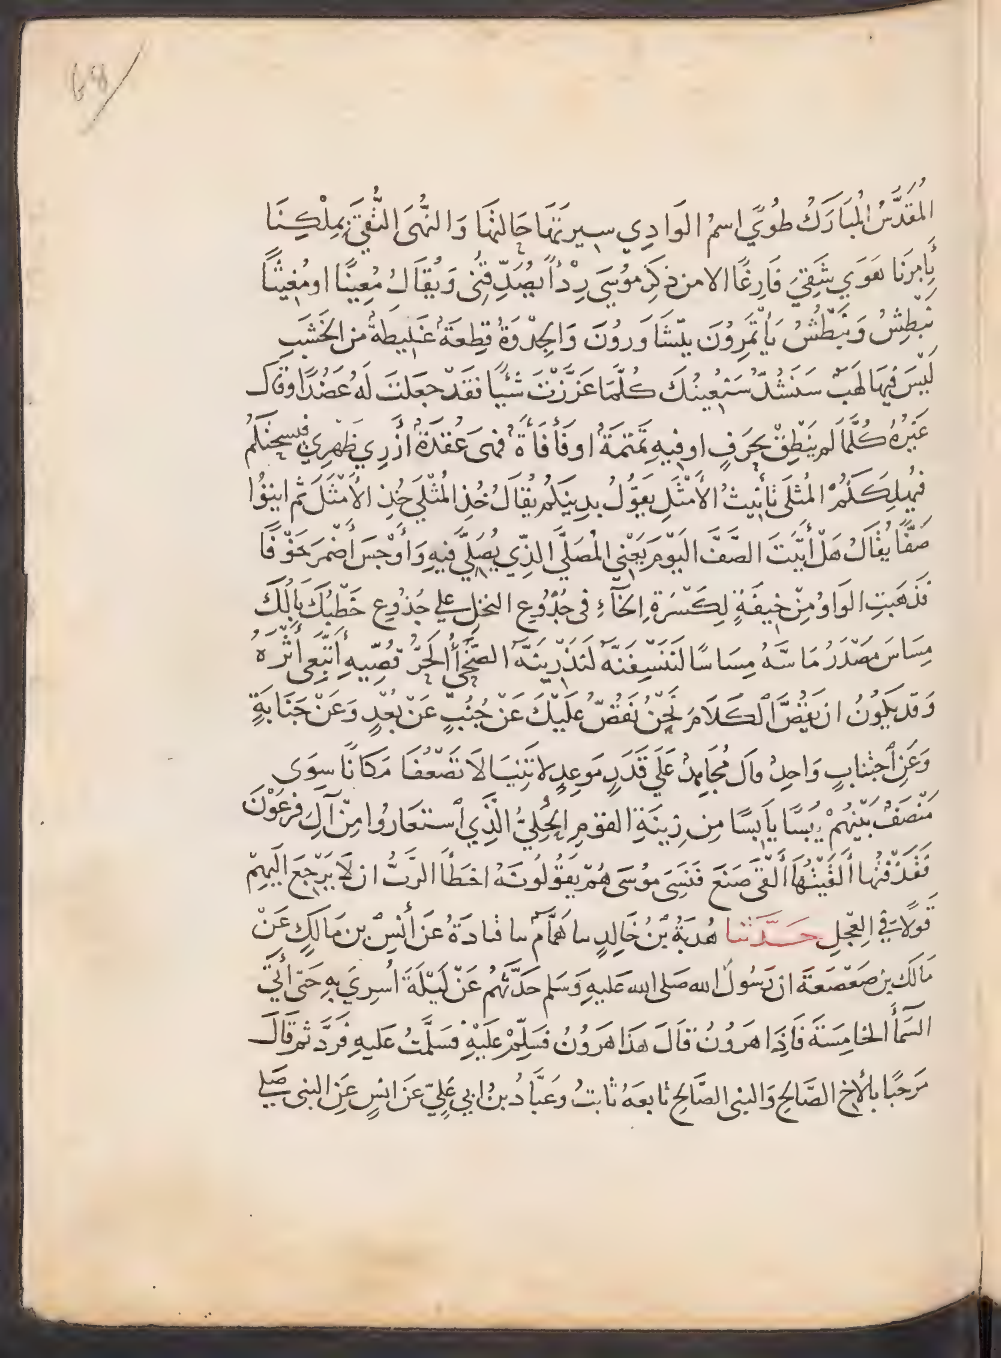 68
المُقَدَّسُ المُبَارَكُ طُوًى اسمُ الوَادِي سِيرَتَهَا حَالَتَهَا وَالنُّهَى التُّقَى بِمِلْكِنَا
بِأَمْرِنَا هَوَى شَقِيَ فَارِغًا الا من ذِكْرِ مُوسَى رِدْءًا يُصَدِّقُنِي وَيُقَالُ مُعِينًا او مُغِيثًا
يَبْطِشُ وَيَبْطُشُ يَأْتَمِرُونَ يَتَشَاوَرُونَ وَالجِذْوَةُ قِطْعَةٌ غَلِيظَةٌ من الخَشَبِ
لَيْسَ فِيهَا لَهَبٌ سَنَشُدُّ سَنُعِينُكَ كُلَّمَا عَزَّزْتَ شَيْئًا فَقَدْ جَعَلْتَ لَهُ عَضُدًا وقال
غَيْرُهُ كُلَّمَا لم يَنْطِقْ بِحَرْفٍ او فِيهِ تَمْتَمَةٌ او فَأْفَأَةٌ فهى عُقْدَةٌ أَزْرِي ظَهْرِي فيسحتكم
فيُهلِكَكُمْ المُثْلَى تَأْنِيثُ الأَمْثَلِ يَقُولُ بدِينِكُم يُقَالُ خُذِ المُثْلَى خُذِ الأَمْثَلَ ثم ايتُوا
صَفًّا يُقَالُ هَلْ أَتَيْتَ الصَّفَّ اليَوْمَ يَعْنِي المُصَلَّى الذِي يُصَلَّى فِيهِ وَأَوْجَسَ أَضْمَرَ خَوْفًا
فَذَهَبَتِ الوَاوُ مِنْ خِيفَةٍ لِكَسْرَةِ الخَآءِ فى جُذُوعِ النخل على جُذُوعِ خَطْبُكَ بَالُكَ
مِسَاسَ مَصْدَرُ مَاسَّهُ مِسَاسًا لَنَنْسِفَنَّهُ لَنَذْرِيَنَّهُ الضَّحَاءُ الحَرُّ قُصِّيهِ أَتْبِعِى أَثَرَهُ
وَقد يَكُونُ ان يَقُصَّ الكَلَامَ نَحْنُ نَقُصُّ عَلَيْكَ عَنْ جُنُبٍ عَنْ بُعْدٍ وَعَنْ جَنَابَةٍ
وَعَنِ اجْتِنَابٍ وَاحِدٌ قال مُجَاهِدٌ عَلَى قَدَرٍ مَوعِدٍ لا تَنِيَا لَا تَضْعُفَا مَكَانًا سِوَى
مَنْصَفٌ بَيْنَهُمْ يَبَسًا يَابِسًا مِن زِينَةِ القومِ الحُلِيِّ الَّذِي اسْتَعَارُوا مِنْ آلِ فِرْعَوْنَ
فَقَذَفْتُهَا أَلْقَيْتُهَا أَلْقَى صَنَعَ فَنَسِىَ مُوسَى هُمْ يَقُولُونَهُ اخطَأَ الرَّبُّ ان لَا يَرْجِعَ اليهِمْ
قَولاً فى العِجْلِ حَدَّثَنا هُدْبَةُ بْنُ خَالِدٍ سا هَمَّامٌ سا قتَادَةُ عَن أَنَسِ بنِ مَالِكٍ عَنْ
مَالك بنِ صَعْصَعَةَ ان رَسُولَ الله صَلى الله عَليهِ وَسَلم حَدَّثَهُمْ عَنْ لَيْلَةَ اُسْرِيَ بِهِ حَتى أَتَى
السَّمَآءَ الخَامِسَةَ فَإِذَا هَرُونُ قَالَ هَذَا هَرُونُ فَسَلِّمْ عَلَيْهِ فسَلَّمْتُ عَلَيهِ فَرَدَّ ثم قَالَ
مَرحَبًا بالأَخِ الصَّالِحِ وَالنبى الصَّالِحِ تَابعَهُ ثَابتُ وعَبَّادُ بنُ ابي عَلِيٍّ عَن انَسٍ عَنِ النبى صَلى